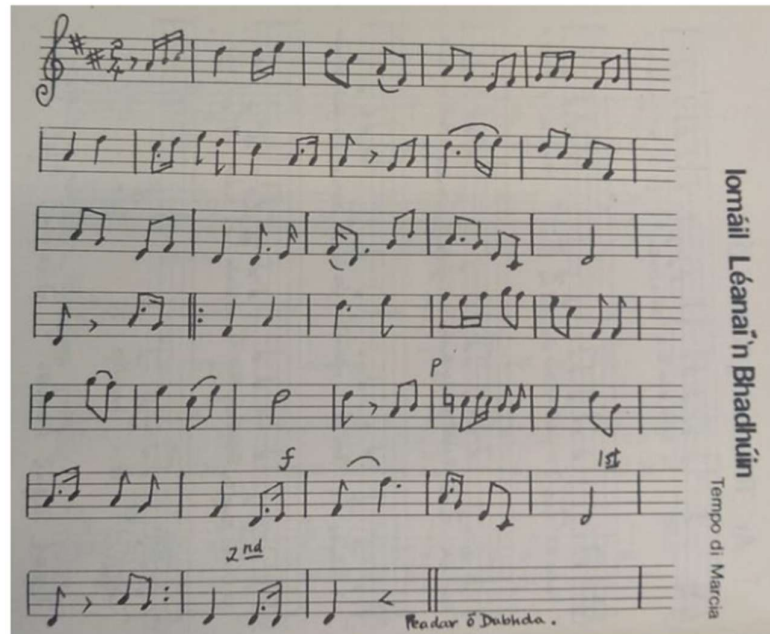 Iomáil Léanaí'n Bhadhúin
Tempo di Marcia
2
4
P
f
1st
2nd
Peadar ó Dubhda.